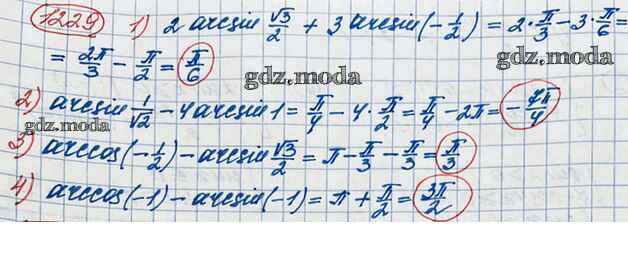 1229 1) 2 arcsin √3/2 + 3 arcsin(-1/2) = 2·π/3 - 3·π/6 =
= 2π/3 - π/2 = π/6
gdz.moda
gdz.moda
2) arcsin 1/√2 - 4 arcsin 1 = π/4 - 4·π/2 = π/4 - 2π = -7π/4
gdz.moda
3) arccos(-1/2) - arcsin √3/2 = π - π/3 - π/3 = π/3
4) arccos(-1) - arcsin(-1) = π + π/2 = 3π/2
gdz.moda